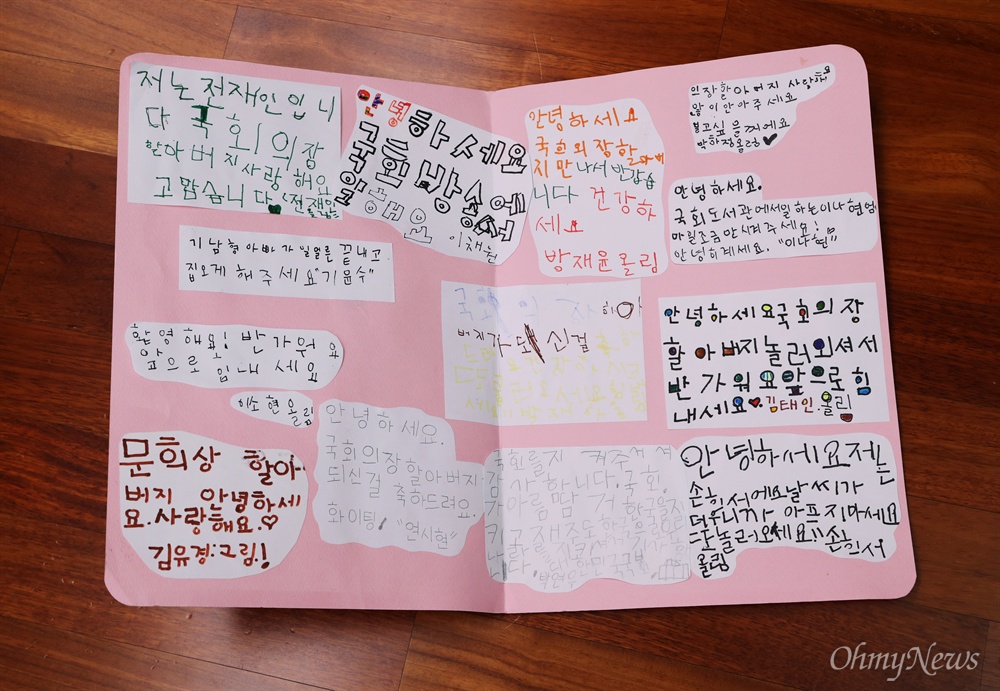 저는 전재인입니
다 국회의장
할아버지사랑해요
고맙습니다.
안녕하세요
국회방송국
이채원
안녕하세요
국회의장할아버
지만나서 반갑습
니다 건강하
세요
방재윤올림
의장할아버지 사랑해요
많이안아주세요
보고싶을꺼에요
박하정올림
안녕하세요.
국회도서관에서일하는이나현엄
마일조금만시켜주세요!
안녕히계세요. "이나현"
기남형아빠가일얼른끝내고
집오게해주세요"기윤수"
환영해요! 반가워요
앞으로 힘내세요
이소현올림
국회의장하아
버지가되신걸
안녕하세요국회의장
할아버지놀러오셔서
반가워요앞으로힘
내세요 김태인.올림
문희상 할아
버지 안녕하세
요.사랑해요.♡
김유경.그림.!
안녕하세요.
국회의장할아버지
되신걸 축하드려요.
화이팅. "연시현"
국회를지켜주셔서
감사합니다.국회.
안녕하세요저는
손희서에요날씨가
더우니까 아프지마세요
또놀러오세요"손희서
올림
OhmyNews